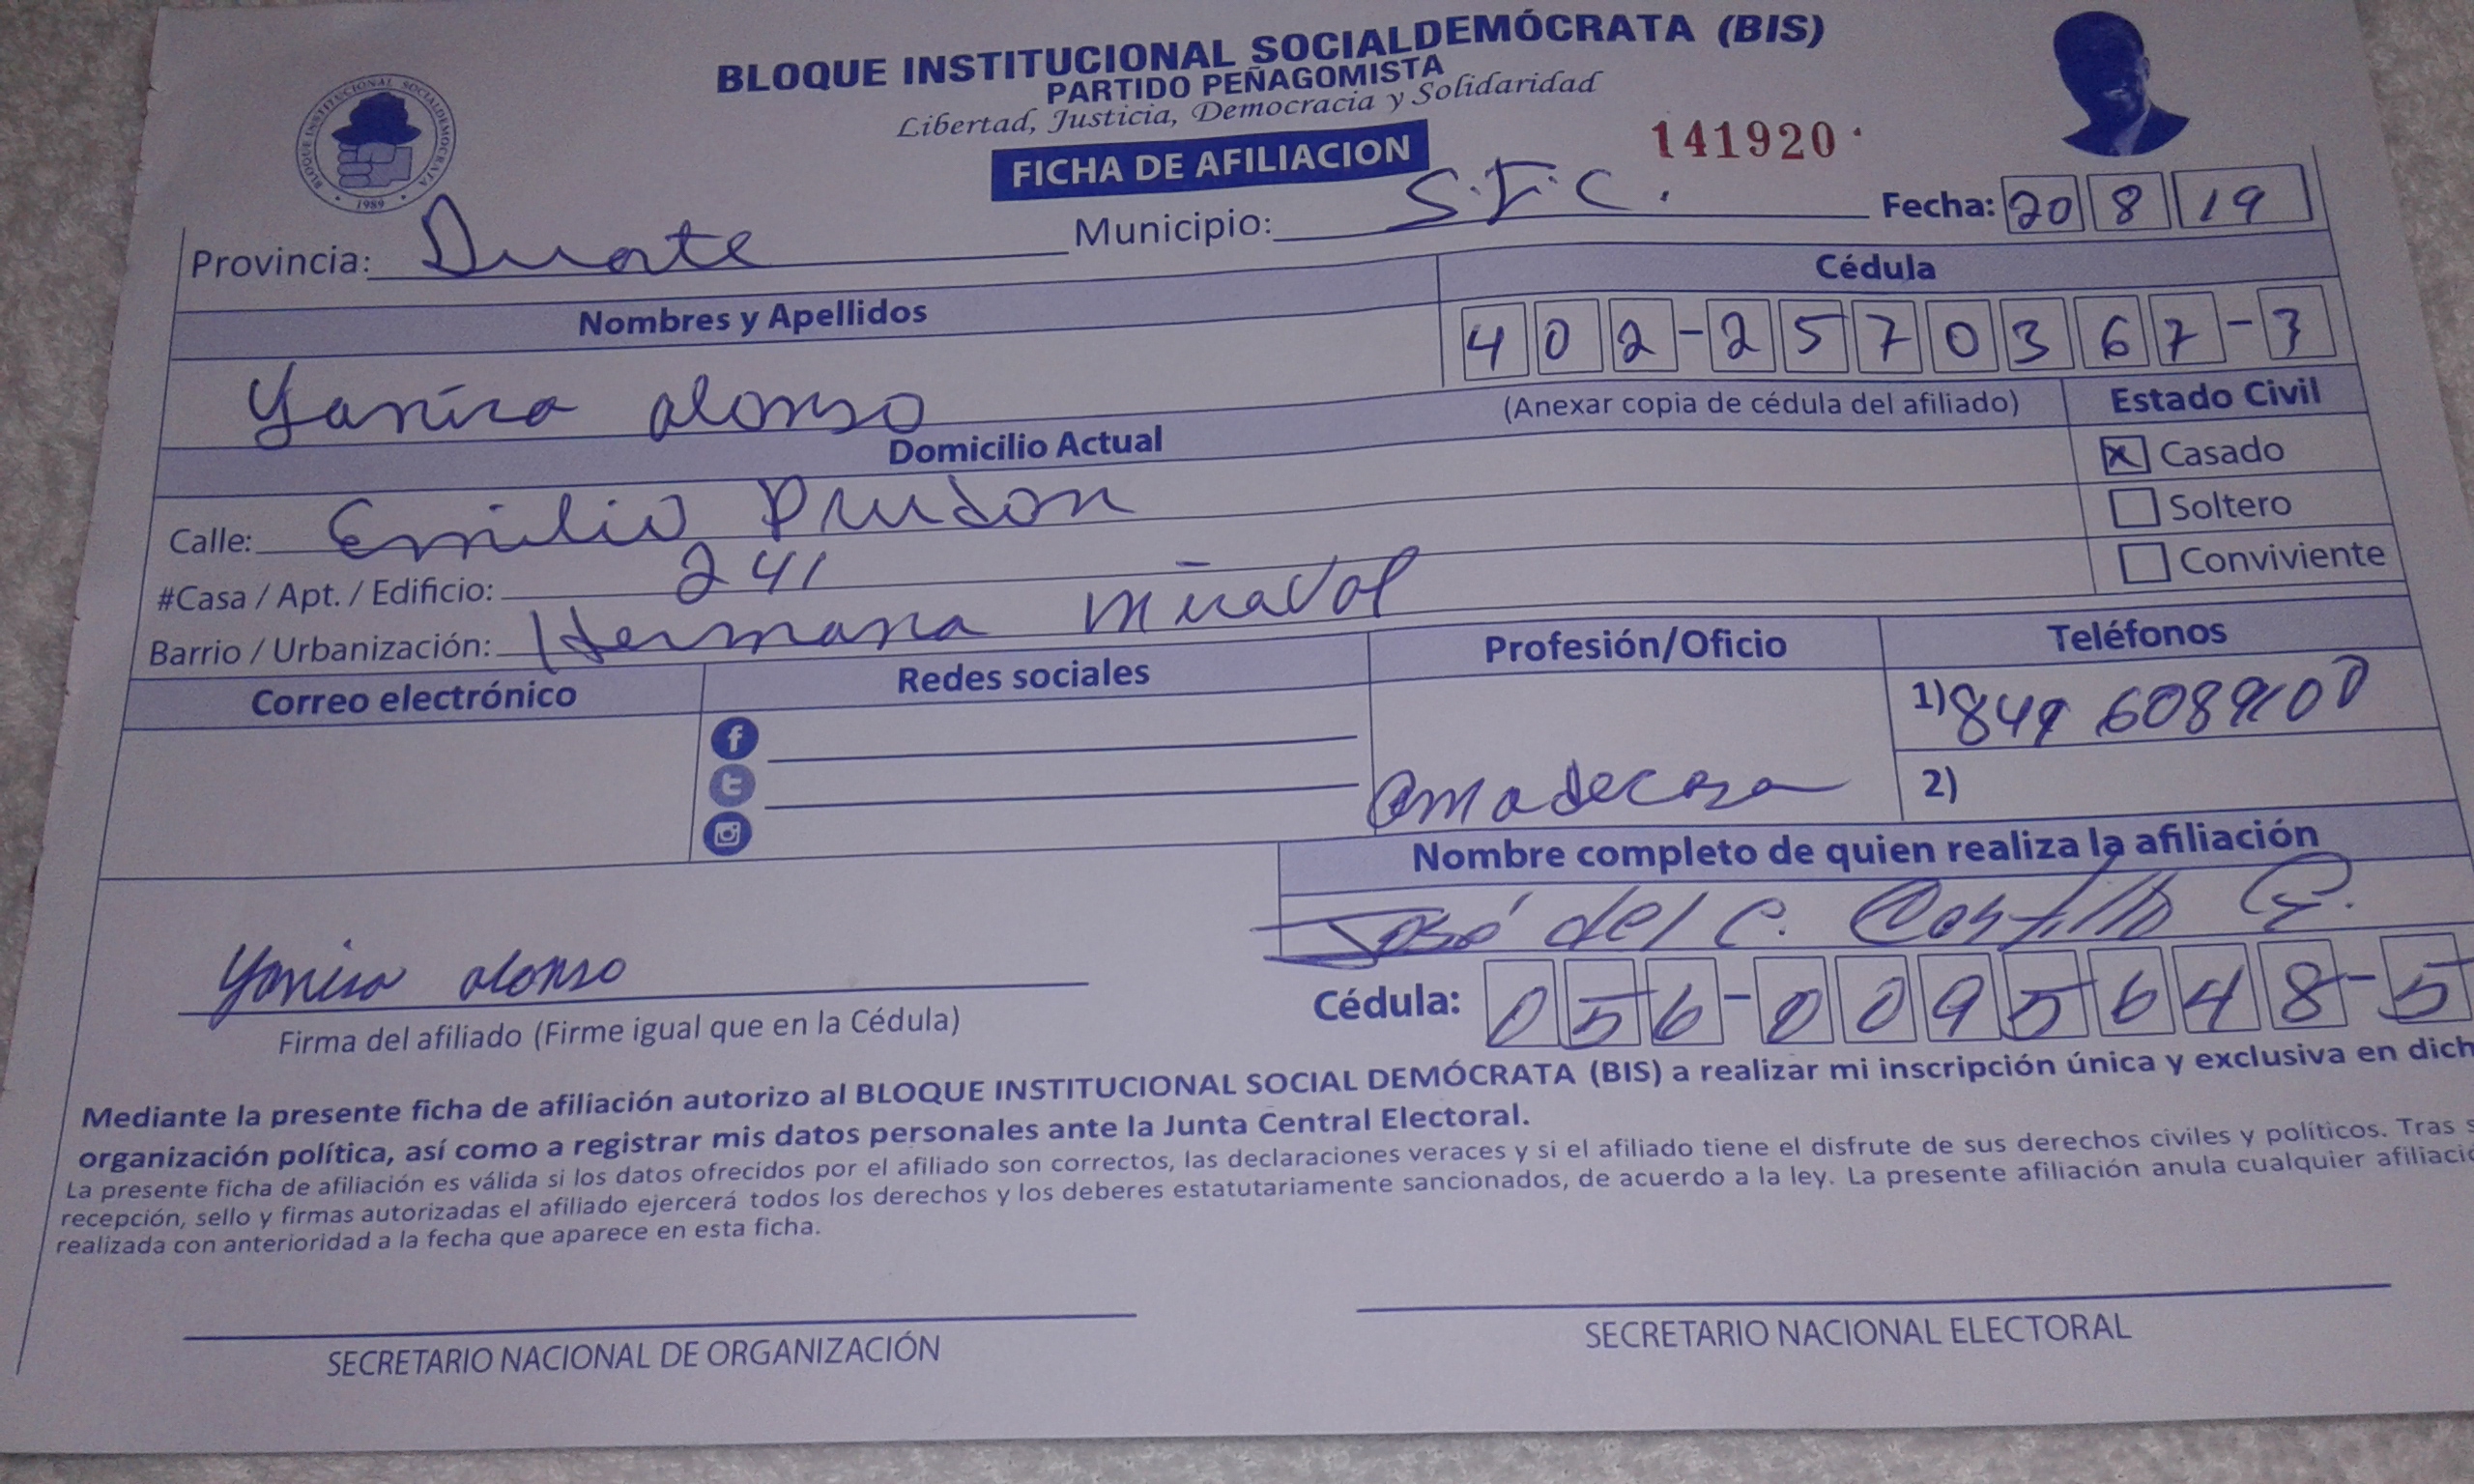 BLOQUE INSTITUCIONAL SOCIALDEMÓCRATA (BIS)
PARTIDO PEÑAGOMISTA
Libertad, Justicia, Democracia y Solidaridad
BLOQUE INSTITUCIONAL SOCIALDEMOCRATA
1989
FICHA DE AFILIACION
141920
Provincia: Duarte Municipio: S.F.C. Fecha: 20 8 19
Nombres y Apellidos Cédula
Yanira alonso 402-2570367-3
(Anexar copia de cédula del afiliado) Estado Civil
Domicilio Actual
x Casado
Calle: Emilio Prudon Soltero
#Casa / Apt. / Edificio: 241 Conviviente
Barrio / Urbanización: Hermana Miraval
Correo electrónico Redes sociales Profesión/Oficio Teléfonos
1) 849 608
amadecasa 2)
Nombre completo de quien realiza la afiliación
José del C. Castillo G.
Yanira alonso
Firma del afiliado (Firme igual que en la Cédula) Cédula: 056-0095648-5
Mediante la presente ficha de afiliación autorizo al BLOQUE INSTITUCIONAL SOCIAL DEMÓCRATA (BIS) a realizar mi inscripción única y exclusiva en dich
organización política, así como a registrar mis datos personales ante la Junta Central Electoral.
La presente ficha de afiliación es válida si los datos ofrecidos por el afiliado son correctos, las declaraciones veraces y si el afiliado tiene el disfrute de sus derechos civiles y políticos. Tras s
recepción, sello y firmas autorizadas el afiliado ejercerá todos los derechos y los deberes estatutariamente sancionados, de acuerdo a la ley. La presente afiliación anula cualquier afiliació
realizada con anterioridad a la fecha que aparece en esta ficha.
SECRETARIO NACIONAL DE ORGANIZACIÓN SECRETARIO NACIONAL ELECTORAL